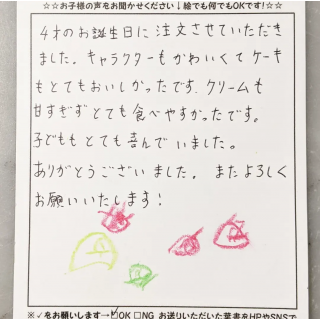 ☆☆お子様の声をお聞かせください↓絵でも何でもOKです!☆☆
4才のお誕生日に注文させていただき
ました。キャラクターもかわいくてケーキ
もとてもおいしかったです。クリームも
甘すぎずとても食べやすかったです。
子どももとても喜んでいました。
ありがとうございました。またよろしく
お願いいたします!
※✓をお願いします→☑OK □NG お送りいただいた葉書をHPやSNSで